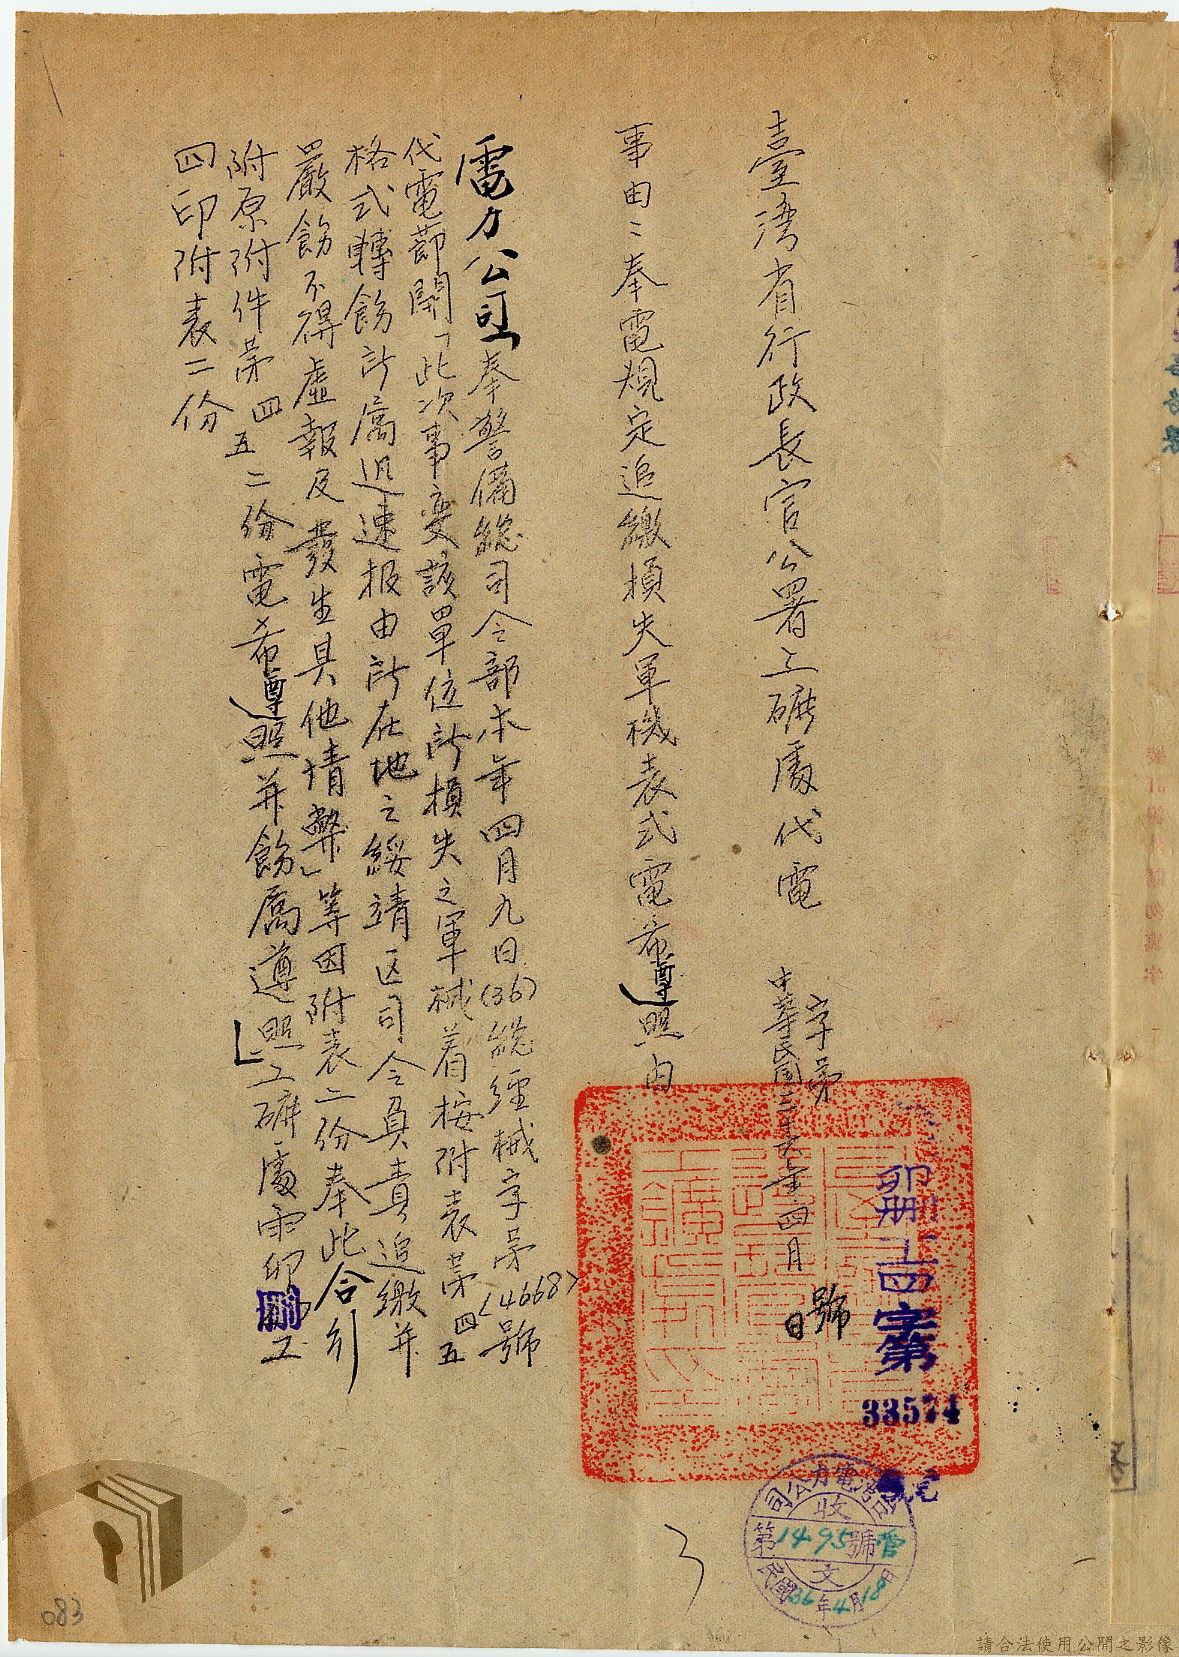 臺灣省行政長官公署工礦處代電
字第
號
中華民國三十六年四月
日
卯刪工四字第
33574
事由：奉電規定追繳損失軍械表式電希遵照由
電力公司奉警備總司令部本年四月九日(36)總經械字第(4668)號
代電節開「此次事變該單位所損失之軍械着按附表第四五
格式轉飭所屬迅速報由所在地之綏靖區司令負責追繳并
嚴飭不得虛報及發生其他情弊」等因附表二份奉此合行
附原附件第四五二份電希遵照并飭屬遵照工礦處卯刪工
四印附表二份
台灣電力公司
收文
第1495號
民國36年4月18日
083
請合法使用公開之影像